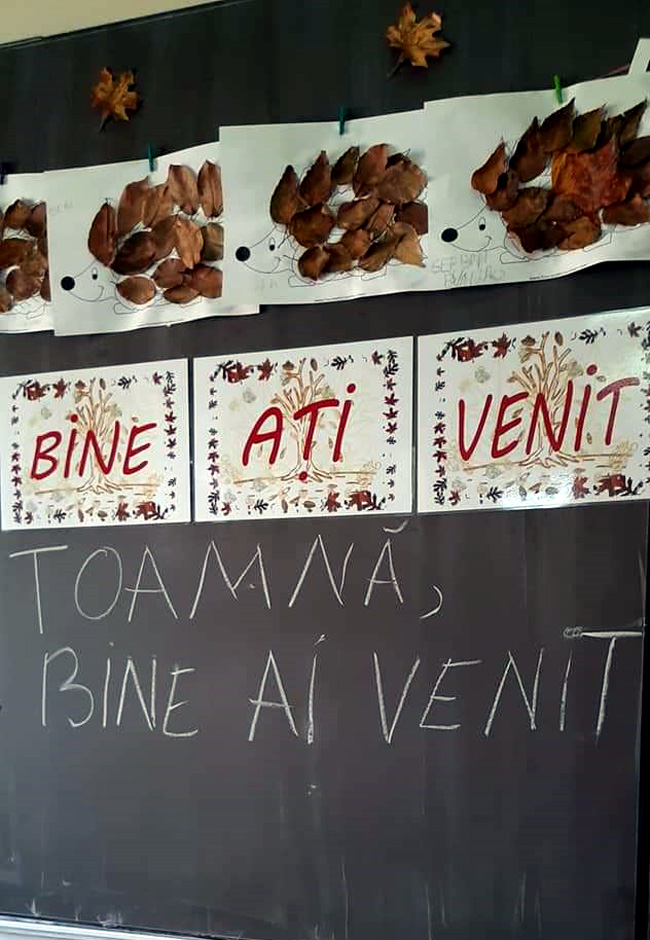 BİNE AȚİ VENİT
TOAMNĂ,
BİNE Aİ VENİT